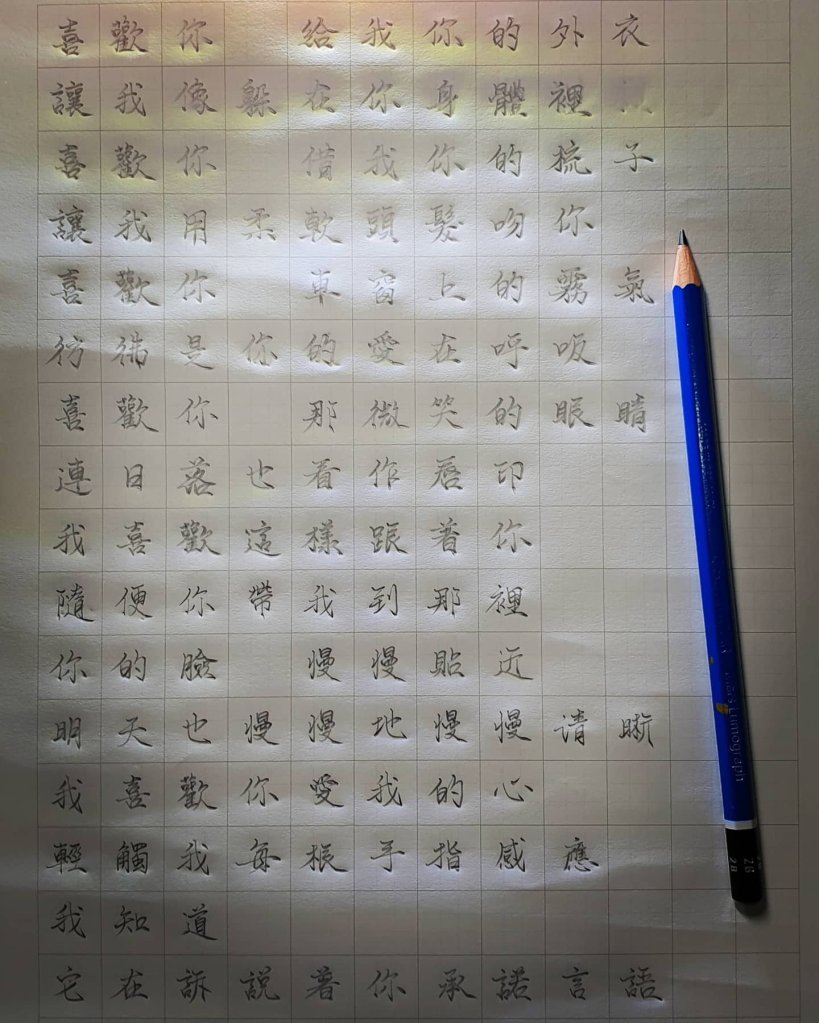 喜歡你 給我你的外衣
讓我像躲在你身體裡
喜歡你 借我你的梳子
讓我用柔軟頭髮吻你
喜歡你 車窗上的霧氣
彷彿是你的愛在呼吸
喜歡你 那微笑的眼睛
連日落也看作唇印
我喜歡這樣跟著你
隨便你帶我到那裡
你的臉 慢慢貼近
明天也慢慢地慢慢请晰
我喜歡你愛我的心
輕觸我每根手指感應
我知道
它在訴說著你承諾言語
Mars Lumograph
2B